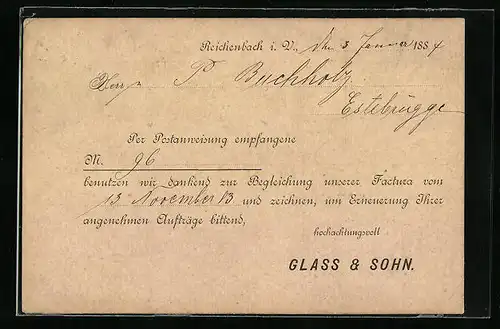 Reichenbach i. V., d. 3 Januar 1884
Herrn P. Buchholz,
Estebrügge
Per Postanweisung empfangene
M. 96
benutzen wir dankend zur Begleichung unserer Factura vom
13 November 83 und zeichnen, um Erneuerung Ihrer
angenehmen Aufträge bittend,
hochachtungsvoll
GLASS & SOHN.